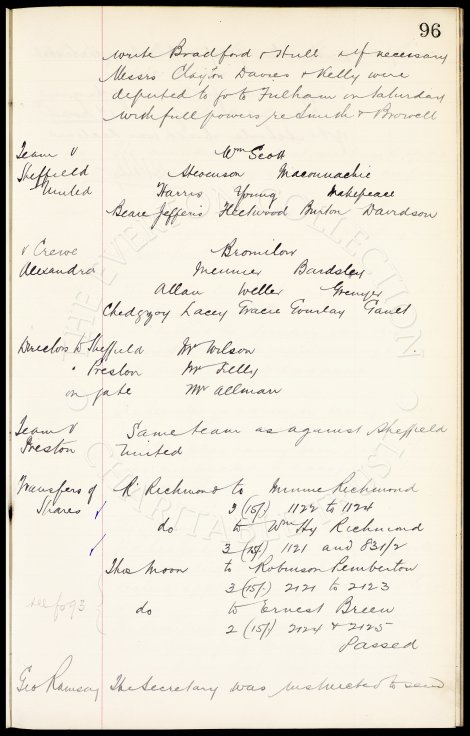 96
write Bradford & Hull if necessary
Messrs Clayton Davies & Kelly were
deputed to go to Fulham on Saturday
with full powers re Smith & Browell
Team v Wm Scott
Sheffield Stevenson Maconnachie
United Harris Young Makepeace
Beare Jefferis Fleetwood Burton Davidson
v Crewe Bromilow
Alexandra Meunier Bardsley
Allan Weller Grenyer
Chedgzoy Lacey Gracie Gourlay Gault
Directors to Sheffield Mr Wilson
" Preston Mr
on gate Mr Allman
Team v Same team as against Sheffield
Preston United
Transfers of R. Richmond to Minnie Richmond
Shares 3 (15/-) 1122 to 1124
do to Wm Hy Richmond
3 (15/-) 1121 and 831/2
Thos Moon to Robinson Pemberton
3 (15/-) 2121 to 2123
see fo 93 do to Ernest Breen
2 (15/-) 2124 & 2125
Passed
Geo Ramsay The Secretary was instructed to send
THE EVERTON COLLECTION
CHARITABLE TRUST